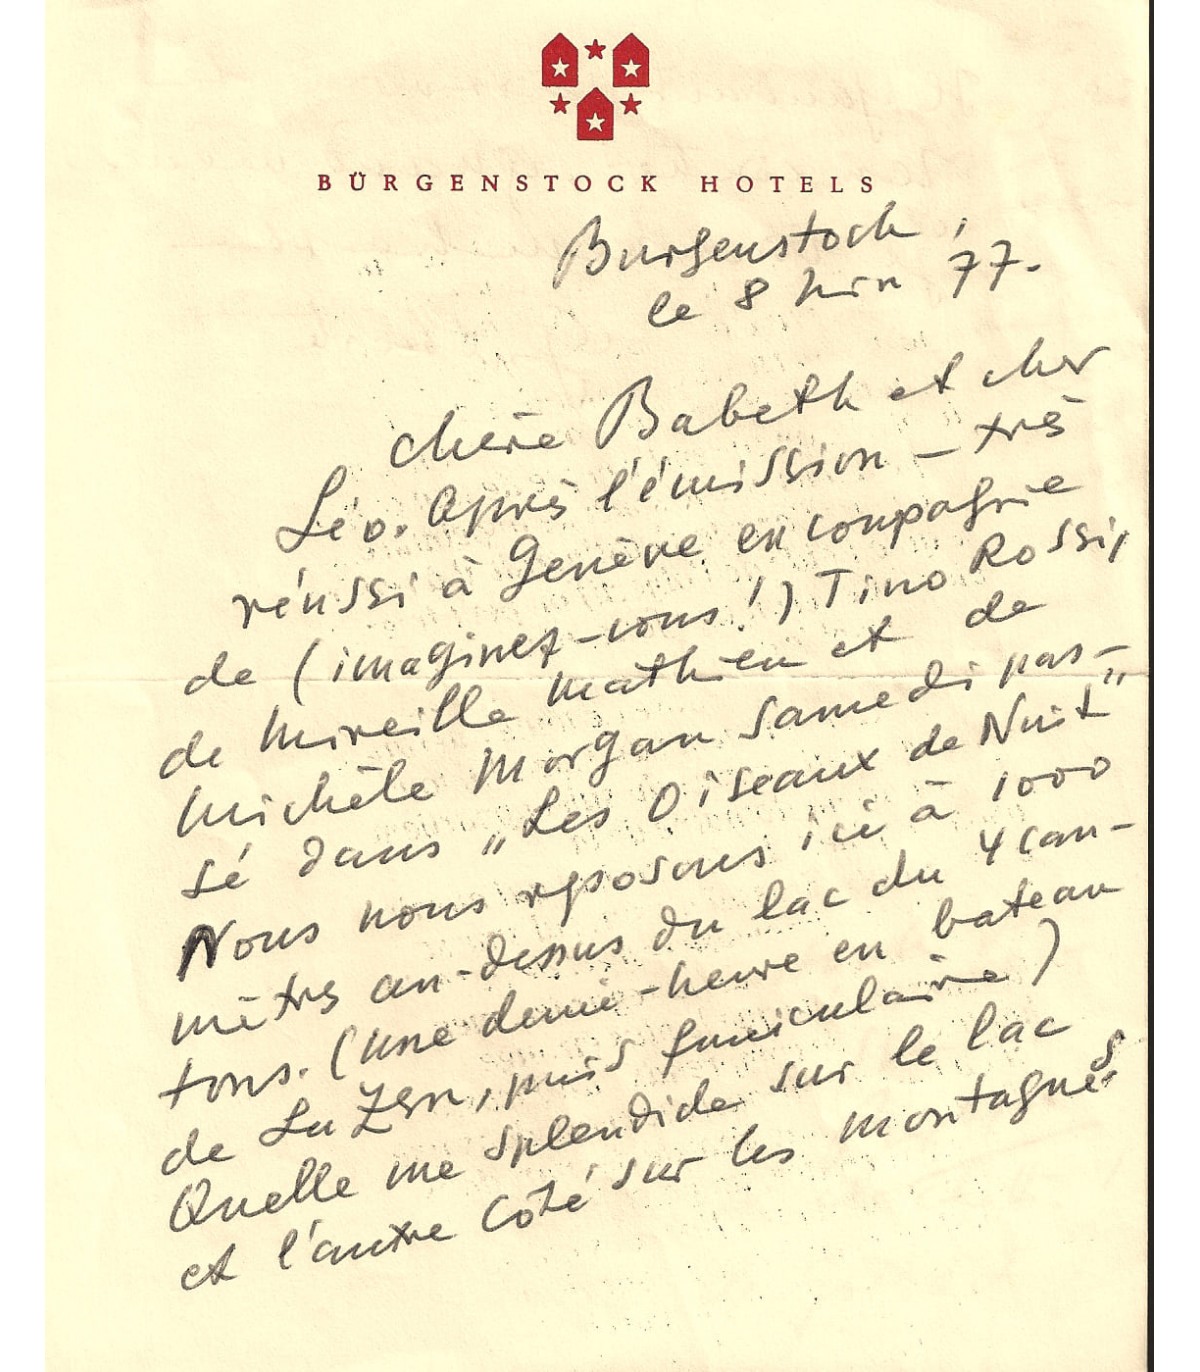 BÜRGENSTOCK HOTELS
Burgenstock,
le 8 Juin 77.
chère Babeth et cher
Léo. Après l'émission – très
réussi à Genève en compagnie
de (imaginez-vous!) Tino Rossi,
de Mireille Mathieu et de
Michèle Morgan samedi pas-
sé dans „Les Oiseaux de Nuit"
Nous nous reposons ici à 1000
mètres au-dessus du lac du 4 can-
tons. (Une demi-heure en bateau
de Luzern, puis funiculaire)
Quelle vue splendide sur le lac
et l'autre côté sur les montagnes